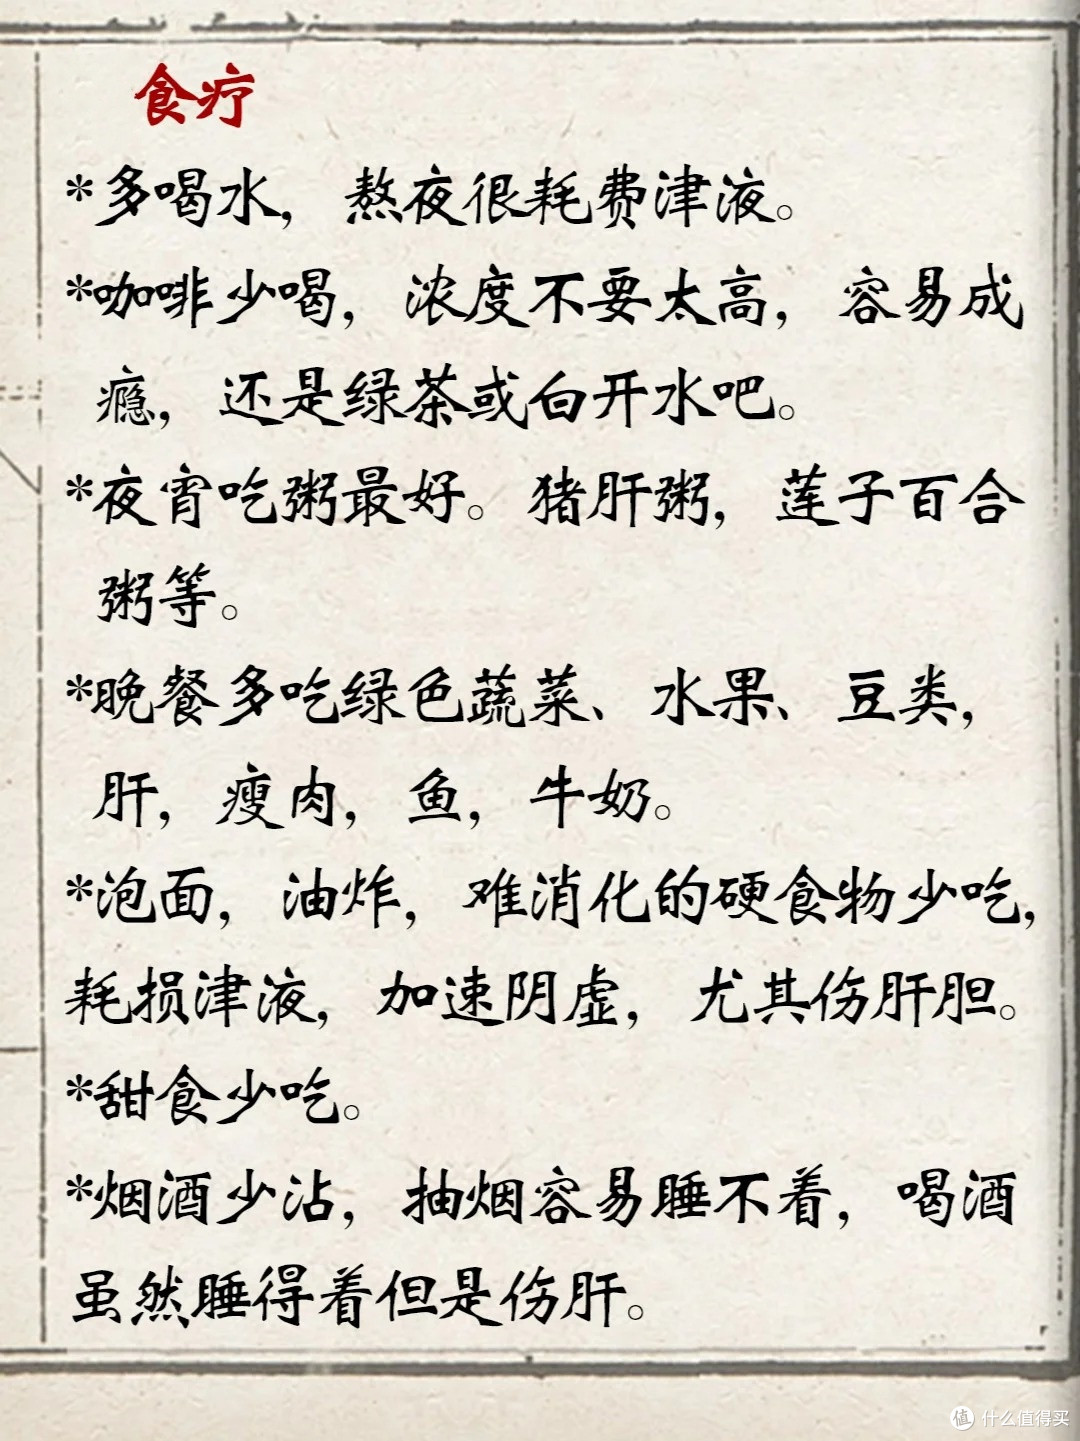 食疗
*多喝水，熬夜很耗费津液。
*咖啡少喝，浓度不要太高，容易成
瘾，还是绿茶或白开水吧。
*夜宵吃粥最好。猪肝粥，莲子百合
粥等。
*晚餐多吃绿色蔬菜、水果、豆类，
肝，瘦肉，鱼，牛奶。
*泡面，油炸，难消化的硬食物少吃，
耗损津液，加速阴虚，尤其伤肝胆。
*甜食少吃。
*烟酒少沾，抽烟容易睡不着，喝酒
虽然睡得着但是伤肝。
值 什么值得买